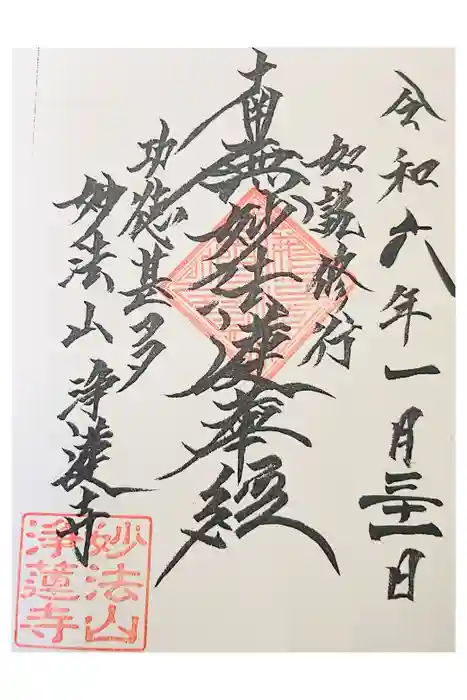 令和六年一月三十一日
如説修行
南無妙法蓮華経
功徳甚多
妙法山 浄蓮寺
妙法山
浄蓮寺